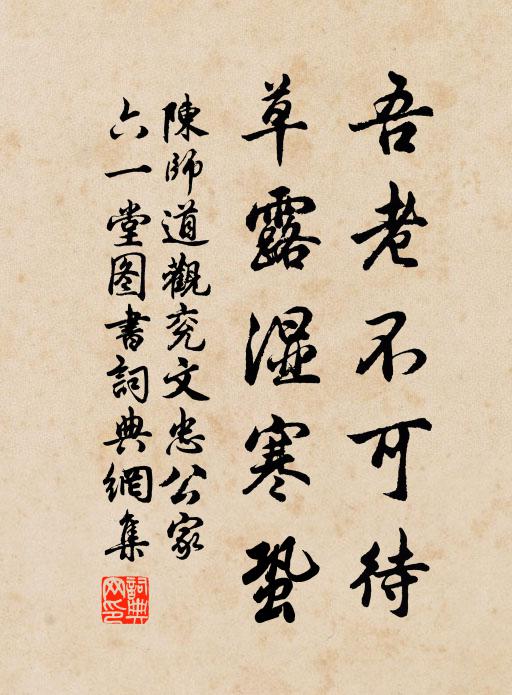 吾老不可待
草露湿寒蛩
陳師道觀兖文忠公家
六一堂图書詞典網集
詞典网印